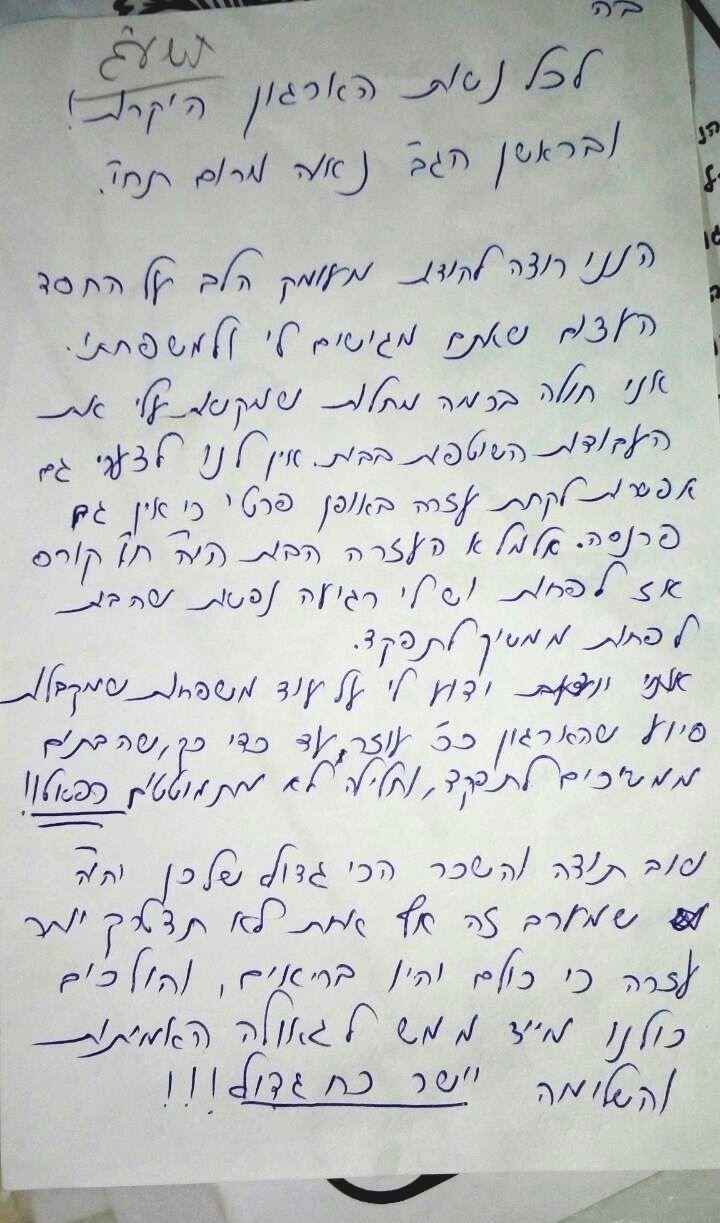 בה
תשע"ג
לכל נשות הארגון היקרות!
ובראשן הגב' נאוה מרום תחי'.
הנני רוצה להודות מעומק הלב על החסד
העצום שאתם מגישים לי ולמשפחתי.
אני חולה בכמה מחלות שמקשות עלי את
העבודות השוטפות בבית. אין לנו לצערי גם
אפשרות לקחת עזרה באופן פרטי כי אין גם
פרנסה. אלמלא העזרה הבית היה ח"ו קורס
אז לפחות יש לי רגיעה נפשית שהבית
לפחות ממשיך לתפקד.
אני ידוע לי על עוד משפחות שמקבלות
סיוע שהארגון כ"כ עוזר עד כדי כך, שהבתים
ממשיכים לתפקד, וחלילה לא מתמוטטים רפואלו!!
שוב תודה והשכר הכי גדול שלכן יהיה
שמערב זה אף אחת לא תצטרך יותר
עזרה כי כולם יהיו בריאים, והולכים
כולנו מייד ממש לגאולה האמיתית
והשלימה יישר כח גדול!!!